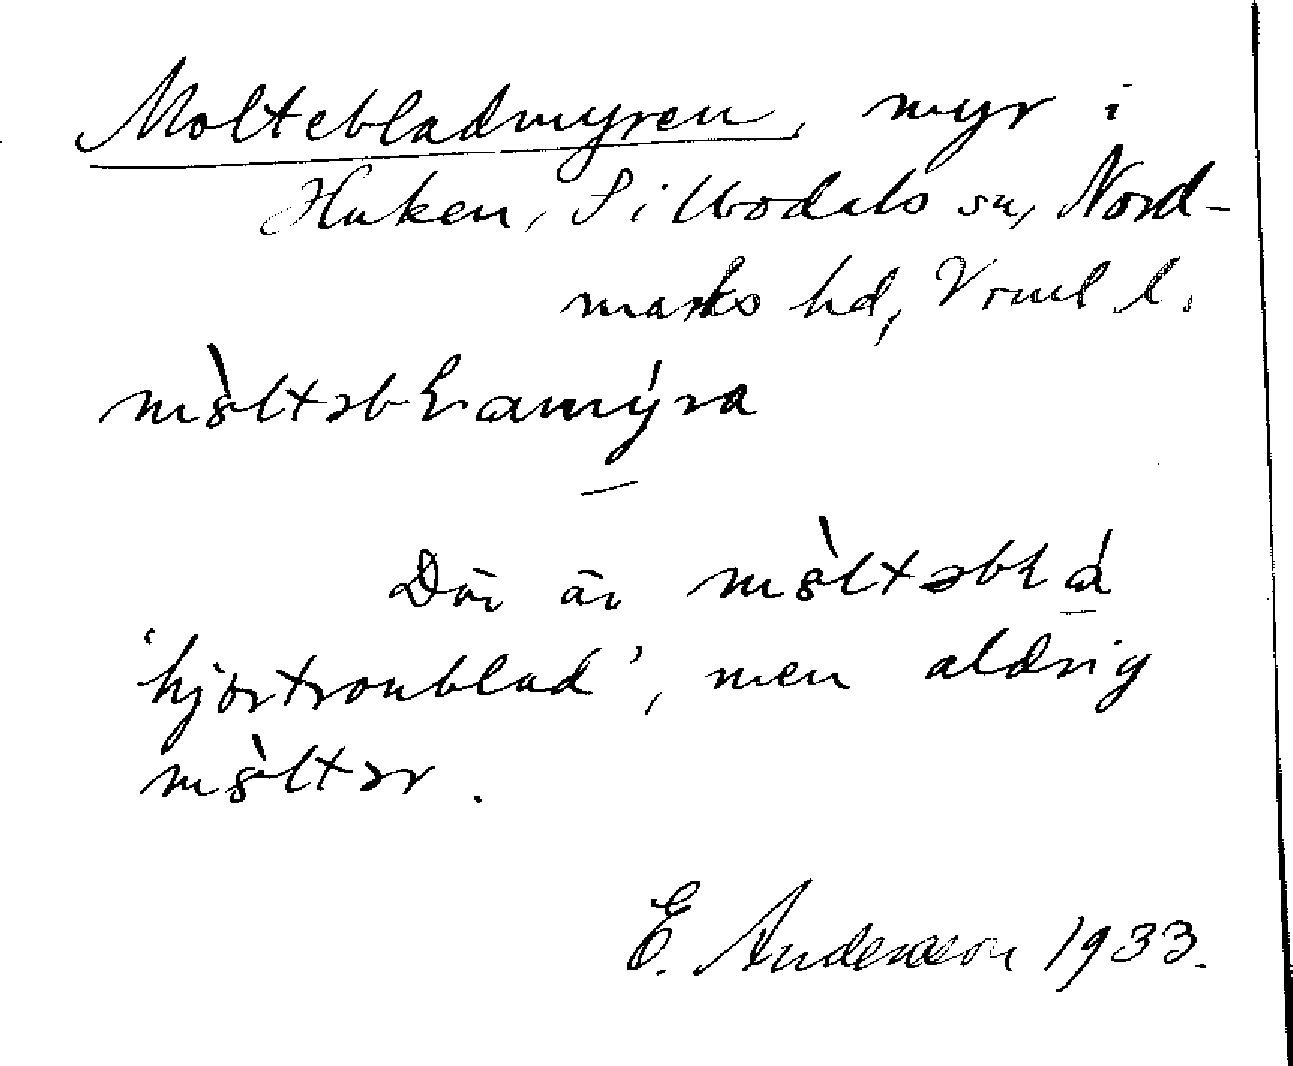 Moltebladmyren, myr i
Haken, Silbodals sn, Nord-
marks hd, Vrml l.
mòltəbɽamýra
Där är mòltəbɽá
'hjortronblad', men aldrig
mòltər.
E. Andersson 1933.